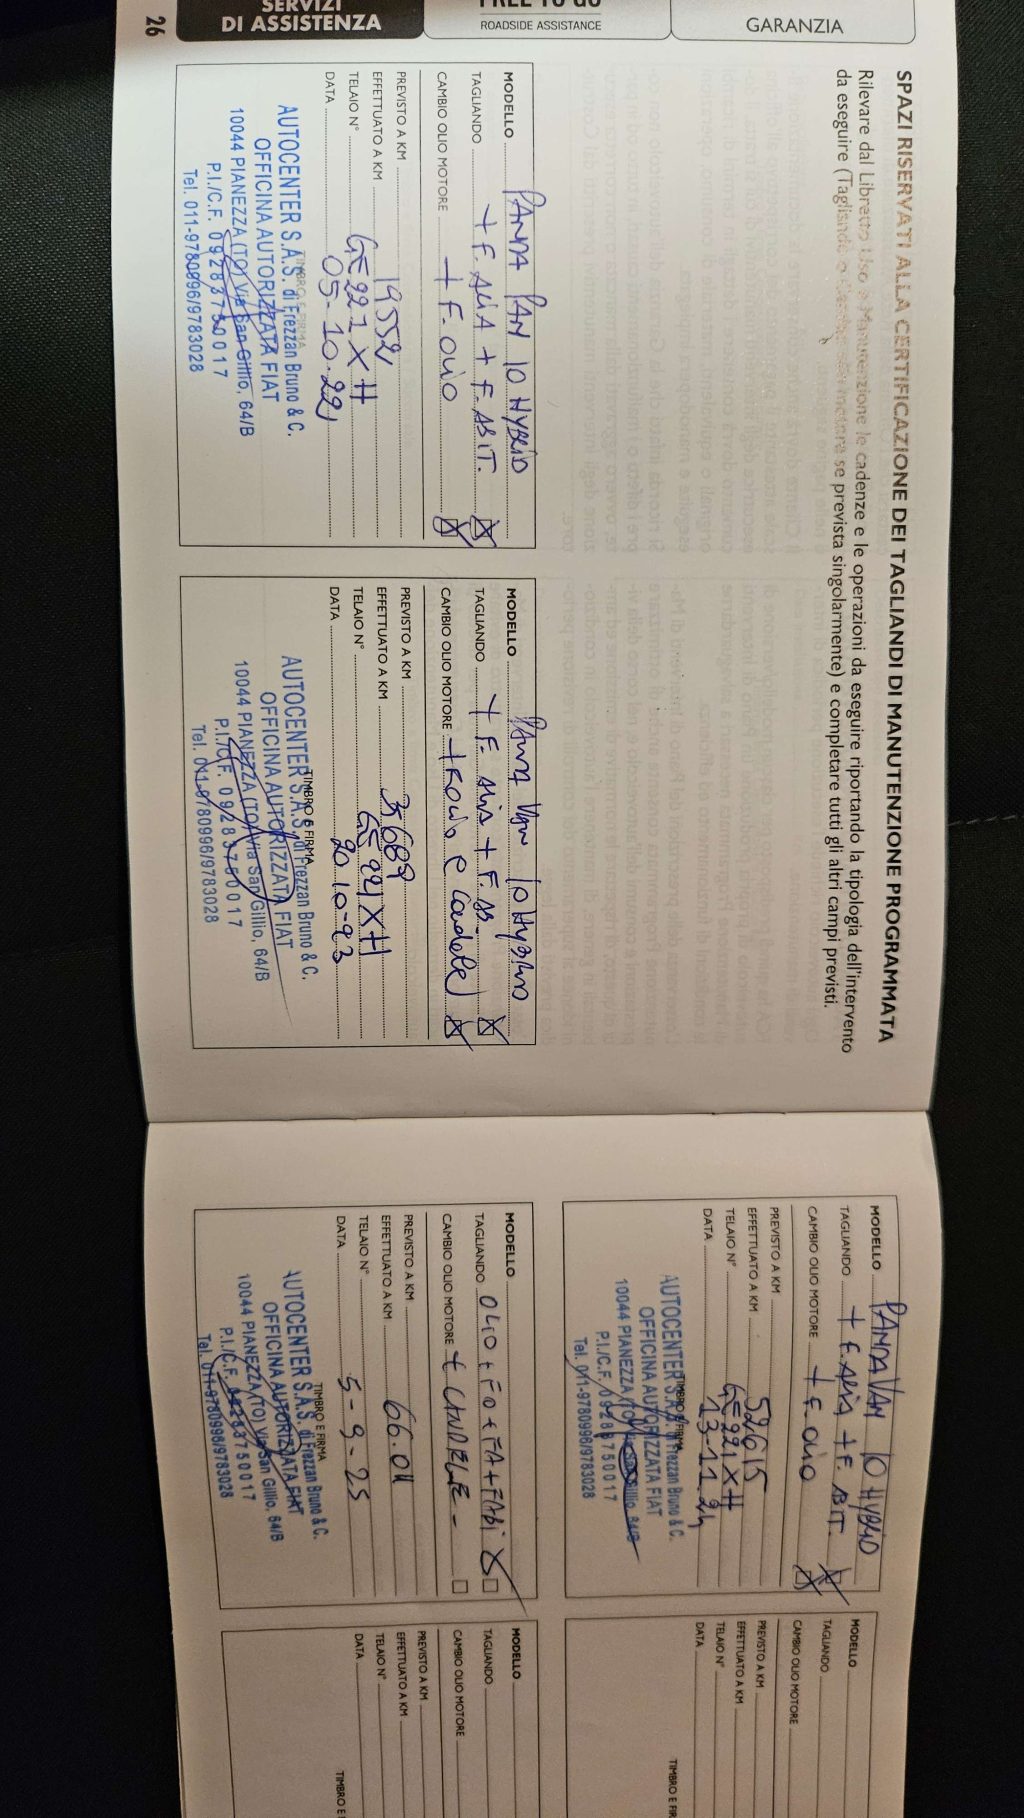 SERVIZI
DI ASSISTENZA
FREE TO GO
ROADSIDE ASSISTANCE
GARANZIA
26
SPAZI RISERVATI ALLA CERTIFICAZIONE DEI TAGLIANDI DI MANUTENZIONE PROGRAMMATA
Rilevare dal Libretto Uso e Manutenzione le cadenze e le operazioni da eseguire riportando la tipologia dell'intervento
da eseguire (Tagliando o Cambio olio motore se prevista singolarmente) e completare tutti gli altri campi previsti.
MODELLO PANDA PAN 10 HYBRID
TAGLIANDO + F. ARIA + F. ABIT.
CAMBIO OLIO MOTORE + F. OLIO
PREVISTO A KM
EFFETTUATO A KM 19552
TELAIO N° GE221XH
DATA 05-10-22
TIMBRO E FIRMA
AUTOCENTER S.A.S. di Frezzan Bruno & C.
OFFICINA AUTORIZZATA FIAT
10044 PIANEZZA (TO) Via San Gillio, 64/B
P.I./C.F. 09283750017
Tel. 011-9780996/9783028
MODELLO PANDA VAN 10 HYBRID
TAGLIANDO + F. ARIA + F. AB.
CAMBIO OLIO MOTORE + F. OLIO e Candele
PREVISTO A KM
EFFETTUATO A KM 35689
TELAIO N° GE221XH
DATA 20 10-23
TIMBRO E FIRMA
AUTOCENTER S.A.S. di Frezzan Bruno & C.
OFFICINA AUTORIZZATA FIAT
10044 PIANEZZA (TO) Via San Gillio, 64/B
P.I./C.F. 09283750017
Tel. 011-9780996/9783028
MODELLO PANDA VAN 10 HYBRID
TAGLIANDO + F. ARIA + F. ABIT.
CAMBIO OLIO MOTORE + F. OLIO
PREVISTO A KM
EFFETTUATO A KM 52615
TELAIO N° GE221XH
DATA 13-11-24
TIMBRO E FIRMA
AUTOCENTER S.A.S. di Frezzan Bruno & C.
OFFICINA AUTORIZZATA FIAT
10044 PIANEZZA (TO) Via San Gillio, 64/B
P.I./C.F. 09283750017
Tel. 011-9780996/9783028
MODELLO
TAGLIANDO
CAMBIO OLIO MOTORE
PREVISTO A KM
EFFETTUATO A KM
TELAIO N°
DATA
TIMBRO E FIR
MODELLO
TAGLIANDO OLIO + FO + FA + F/Abi
CAMBIO OLIO MOTORE + CANDELE -
PREVISTO A KM
EFFETTUATO A KM 66.011
TELAIO N°
DATA 5-9-25
TIMBRO E FIRMA
AUTOCENTER S.A.S. di Frezzan Bruno & C.
OFFICINA AUTORIZZATA FIAT
10044 PIANEZZA (TO) Via San Gillio, 64/B
P.I./C.F. 09283750017
Tel. 011-9780996/9783028
MODELLO
TAGLIANDO
CAMBIO OLIO MOTORE
PREVISTO A KM
EFFETTUATO A KM
TELAIO N°
DATA
TIMBRO E